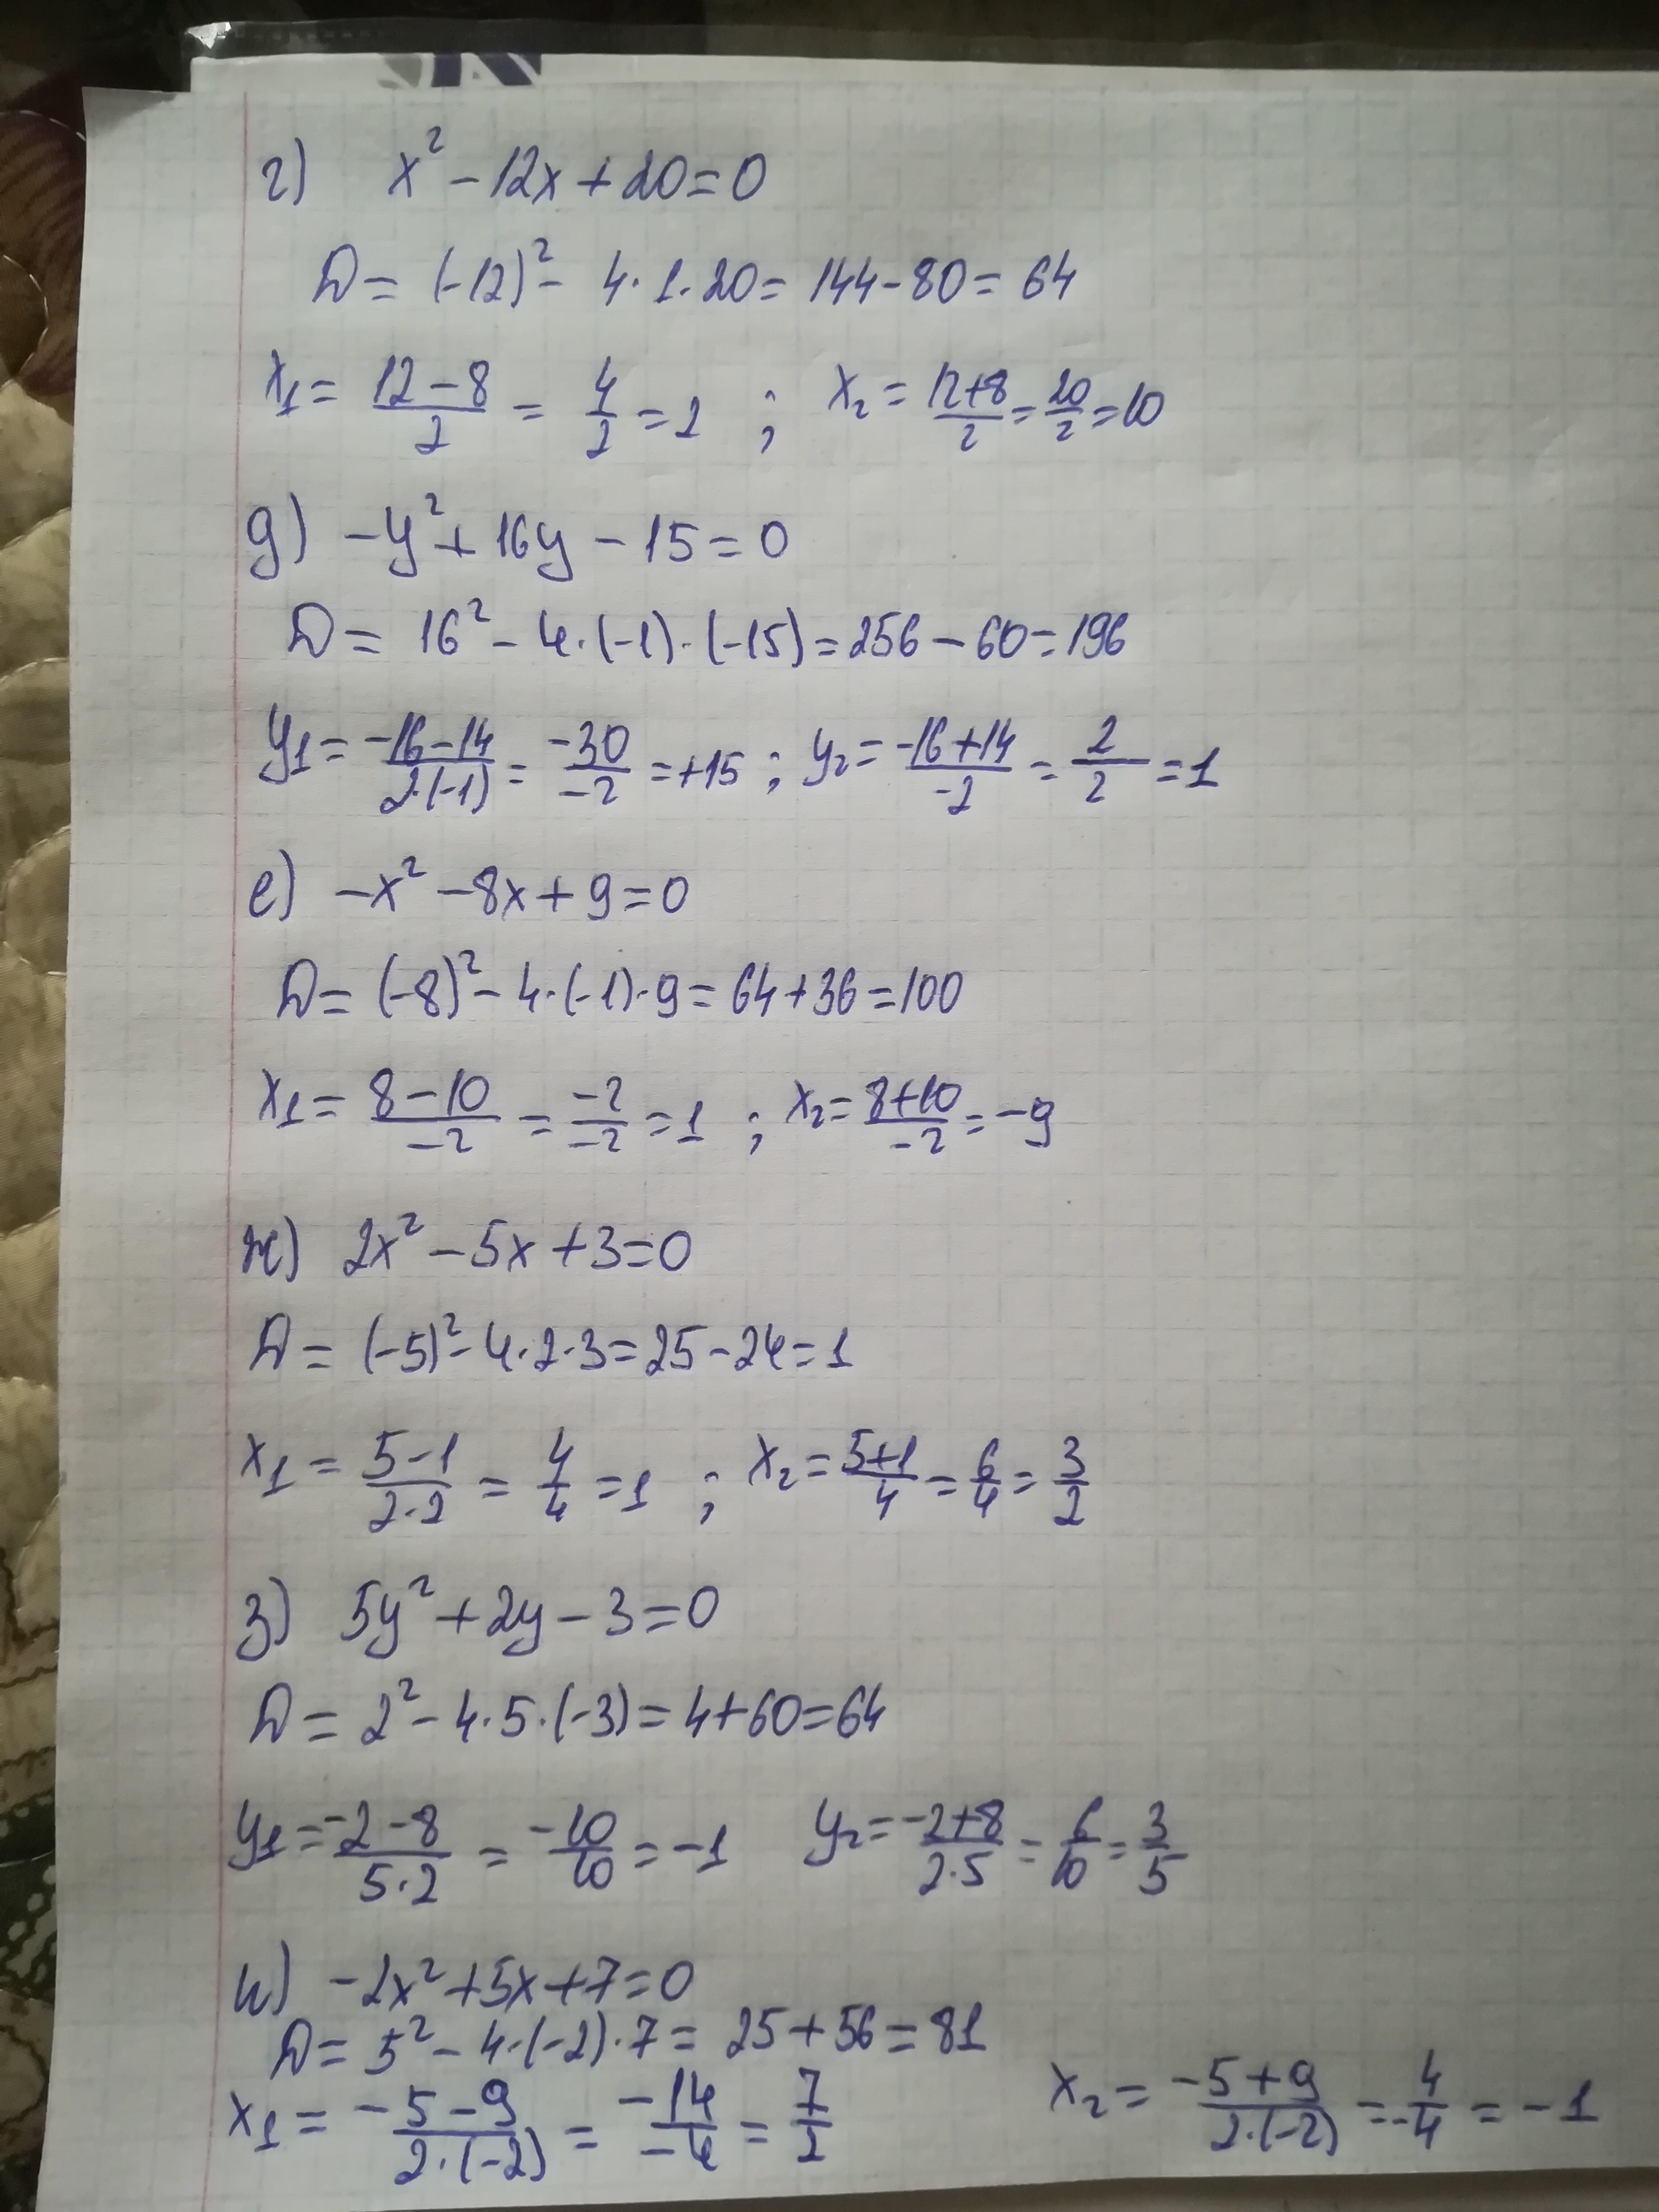 г) x² - 12x + 20 = 0
D = (-12)² - 4·1·20 = 144 - 80 = 64
x₁ = (12-8)/2 = 4/2 = 2 ; x₂ = (12+8)/2 = 20/2 = 10
д) -y² + 16y - 15 = 0
D = 16² - 4·(-1)·(-15) = 256 - 60 = 196
y₁ = (-16-14)/(2·(-1)) = (-30)/(-2) = +15 ; y₂ = (-16+14)/(-2) = 2/2 = 1
е) -x² - 8x + 9 = 0
D = (-8)² - 4·(-1)·9 = 64 + 36 = 100
x₁ = (8-10)/(-2) = (-2)/(-2) = 1 ; x₂ = (8+10)/(-2) = -9
ж) 2x² - 5x + 3 = 0
D = (-5)² - 4·2·3 = 25 - 24 = 1
x₁ = (5-1)/(2·2) = 4/4 = 1 ; x₂ = (5+1)/4 = 6/4 = 3/2
з) 5y² + 2y - 3 = 0
D = 2² - 4·5·(-3) = 4 + 60 = 64
y₁ = (-2-8)/(5·2) = (-10)/10 = -1 y₂ = (-2+8)/(2·5) = 6/10 = 3/5
и) -2x² + 5x + 7 = 0
D = 5² - 4·(-2)·7 = 25 + 56 = 81
x₁ = (-5-9)/(2·(-2)) = (-14)/(-4) = 7/2 x₂ = (-5+9)/(2·(-2)) = -4/4 = -1